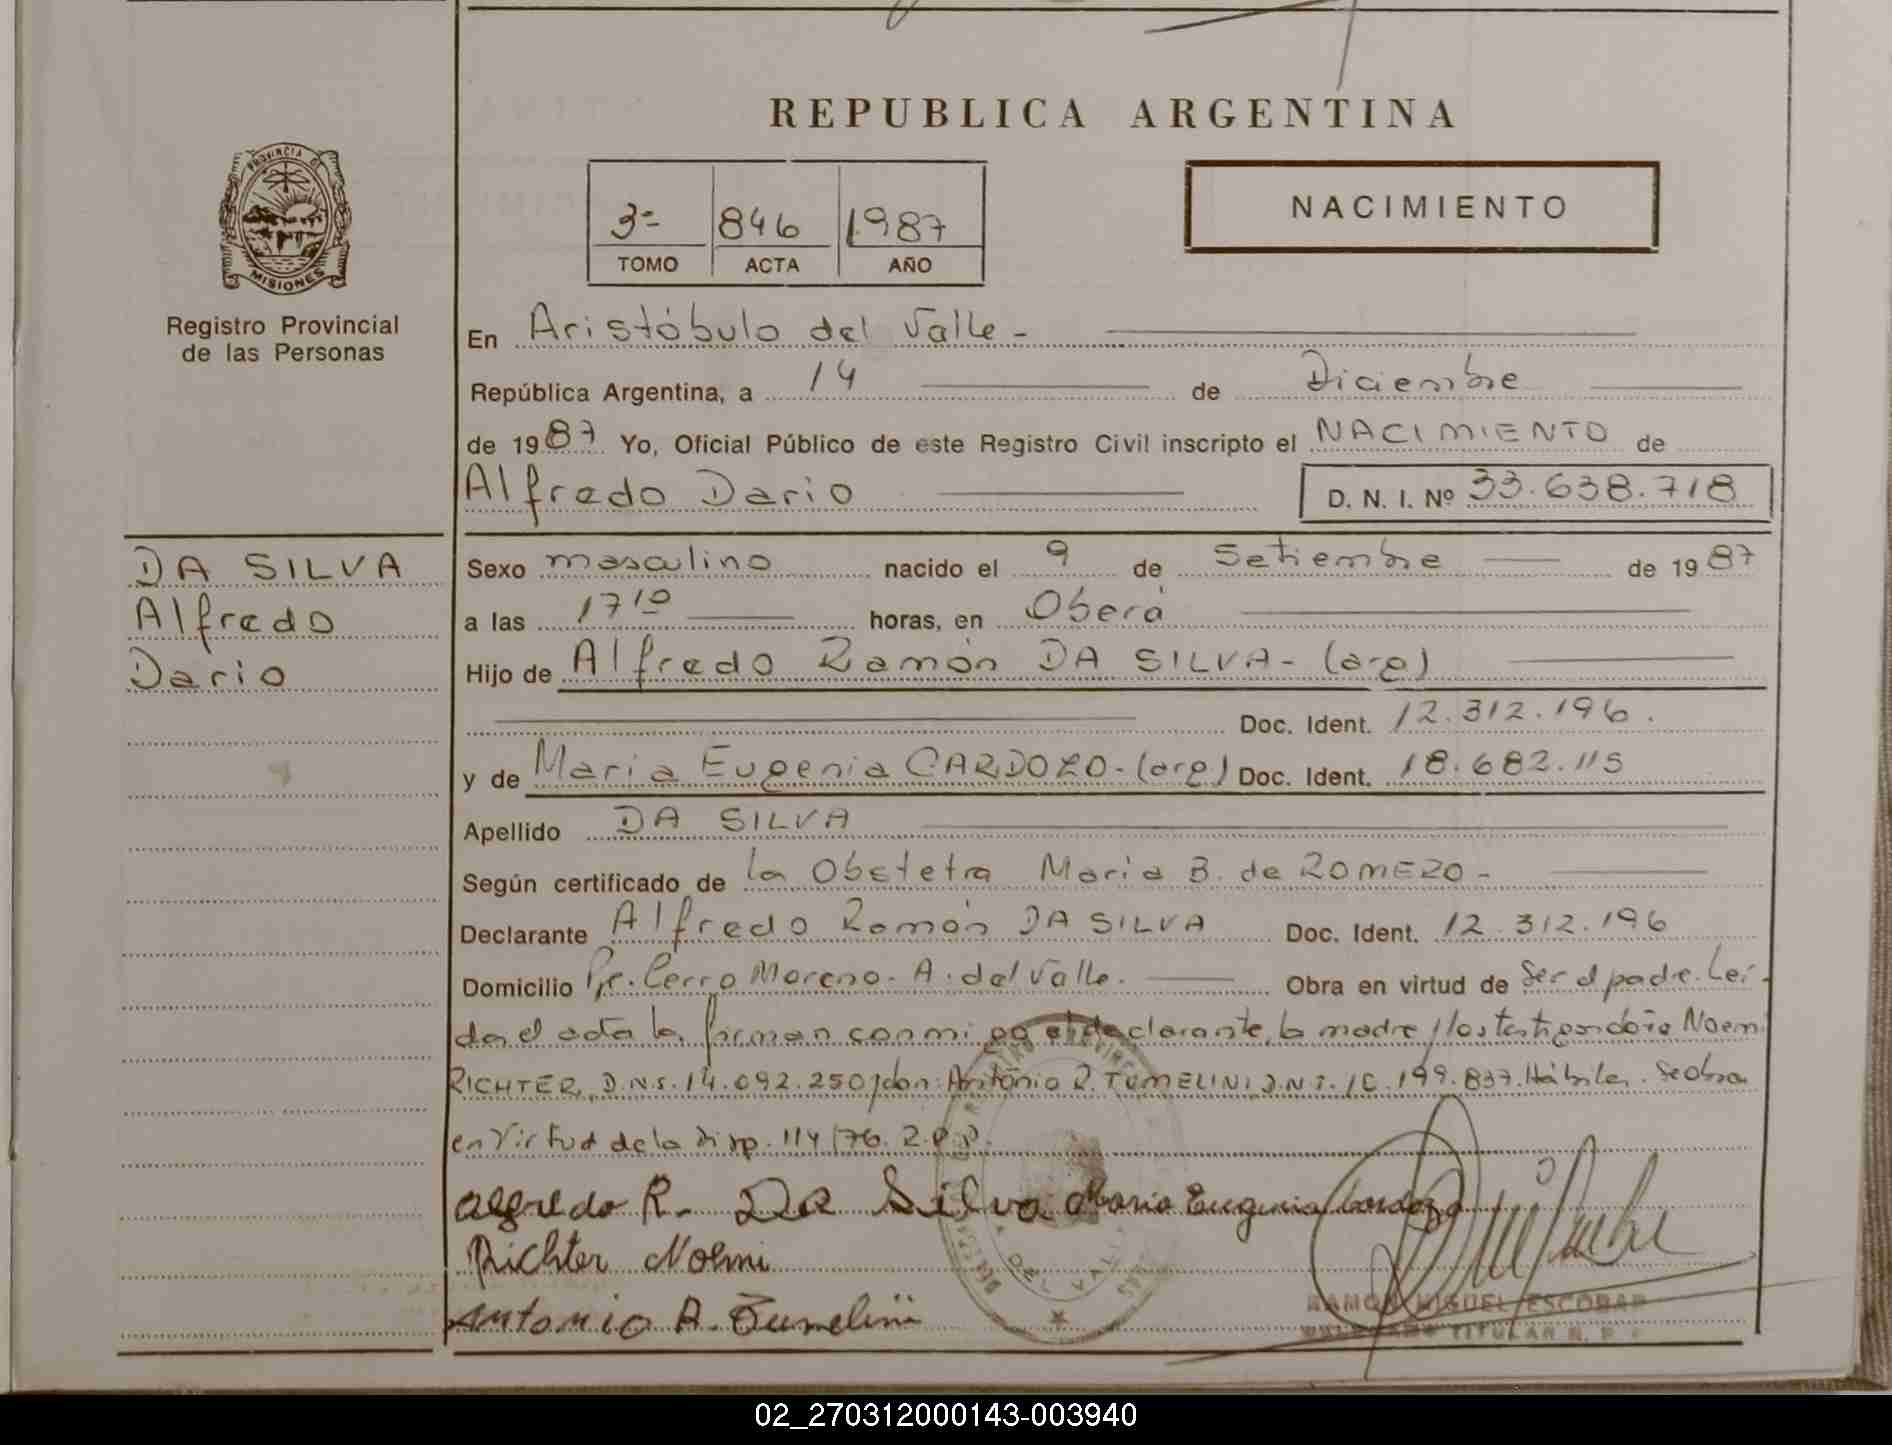 REPUBLICA ARGENTINA
PROVINCIA DE
MISIONES
Registro Provincial
de las Personas
3= 846 1987
TOMO ACTA AÑO
NACIMIENTO
En Aristóbulo del Valle -
República Argentina, a 14 de Diciembre
de 1987 Yo, Oficial Público de este Registro Civil inscripto el NACIMIENTO de
Alfredo Dario D. N. I. Nº 33.638.718
DA SILVA
Alfredo
Dario
Sexo masculino nacido el 9 de Setiembre de 1987
a las 17 10 horas, en Oberá
Hijo de Alfredo Ramón DA SILVA - (arg)
Doc. Ident. 12.312.196.
y de Maria Eugenia CARDOZO - (arg) Doc. Ident. 18.682.115
Apellido DA SILVA
Según certificado de la Obstetra Maria B. de ROMERO -
Declarante Alfredo Ramón DA SILVA Doc. Ident. 12.312.196
Domicilio Pje. Cerro Moreno - A. del Valle. Obra en virtud de Ser el padre. Leí-
da el acta la firman conmigo el declarante, la madre y los testigos doña Noemi
RICHTER, D.N.I. 14.092.250 y don: Antonio R. TUMELINI D.N.I. 10.199.837. Hábiles. Se obra
en Virtud de la Disp. 114/76. R.P.P.
Alfredo R. Da Silva Maria Eugenia Cardozo
Richter Noemi
Antonio A. Tumelini
RAMON MIGUEL ESCOBAR
TITULAR R. P.
02_270312000143-003940